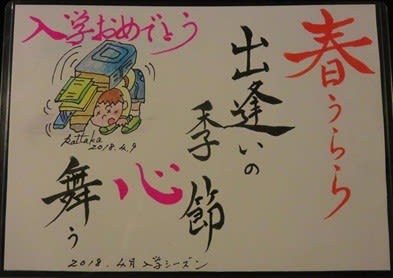 入学おめでとう
春うらら
出逢いの
季節
心
舞う
2018.4.9
2018.4月入学シーズン